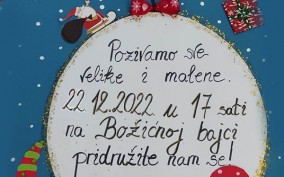 Pozivamo sve
velike i malene.
22.12.2022 u 17 sati
na Božićnoj bajci
pridružite nam se!